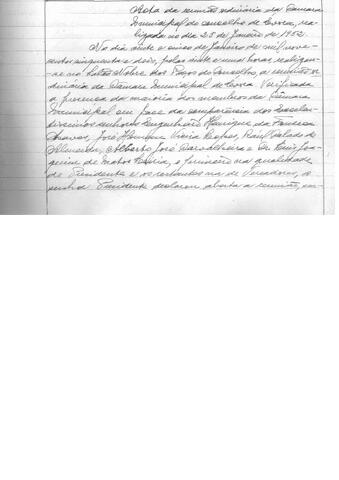 Acta da reunião ordinária da Câmara
Municipal do concelho de rea-
lizada no dia 25 de Janeiro de 1952.
No dia vinte e cinco de Janeiro de mil nove-
centos cinquenta e dois, pelas vinte e uma horas realizou-
se no Salão Nobre dos Paços do Concelho, a reunião or-
dinária da Câmara Municipal de Verificada
a presença da maioria dos membros da Câmara
Municipal em face da comparência dos Excelen-
tíssimos senhores Engenheiro Henrique da Fonseca
Chaves, José Vieira Raúl de
Almeida, Alberto José e Dr. Luis Joa-
quim de Matos e na qualidade
de Presidente e os restantes na de Vereadores, o
senhor Presidente declarou aberta a reunião,